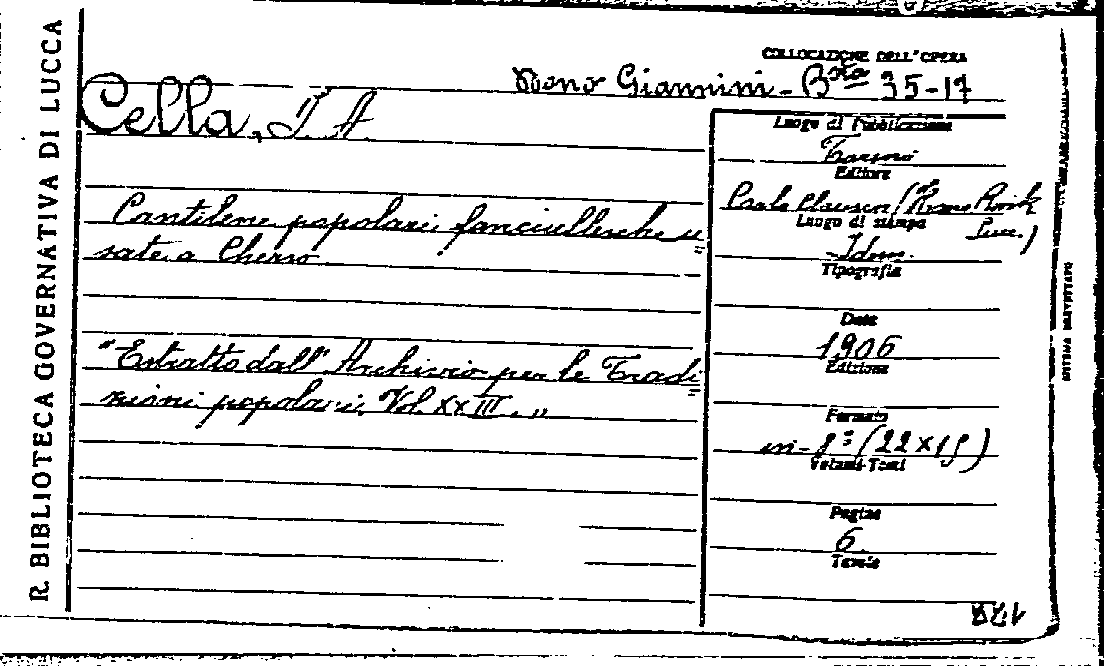 R. BIBLIOTECA GOVERNATIVA DI LUCCA
COLLOCAZIONE DELL'OPERA
Dono Giannini - Bsta 35-17
Cella,
Cantilene popolari fanciullesche u=
sate a Cherso
"Estratto dall'Archivio per le Tradi=
zioni popolari, Vol. XXIII."
Luogo di Pubblicazione
Torino
Editore
Carlo Clausen (
Luogo di stampa
Succ.)
Idem.
Tipografia
Data
1906
Edizione
Formato
in-8º (22×15)
Volumi-Tomi
Pagine
6.
Tavole